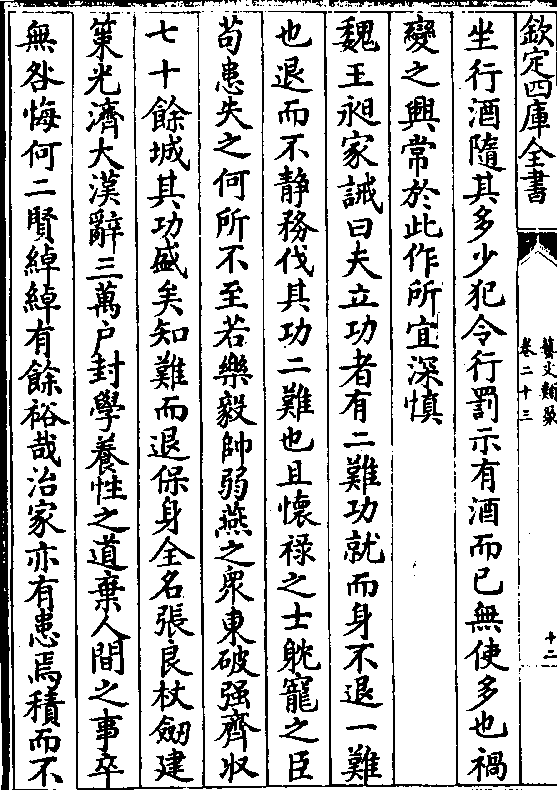 欽定四庫全書
藝文類聚
卷二十三
十二
坐行酒隨其多少犯令行罰示有酒而已無使多也禍
變之興常於此作所宜深慎
魏王昶家誡曰夫立功者有二難功就而身不退一難
也退而不静務伐其功二難也且懐禄之士躭寵之臣
苟患失之何所不至若樂毅帥弱燕之衆東破强齊収
七十餘城其功盛矣知難而退保身全名張良杖劒建
策光濟大漢辭三萬户封學養性之道棄人間之事卒
無咎悔何二賢綽綽有餘裕哉治家亦有患焉積而不